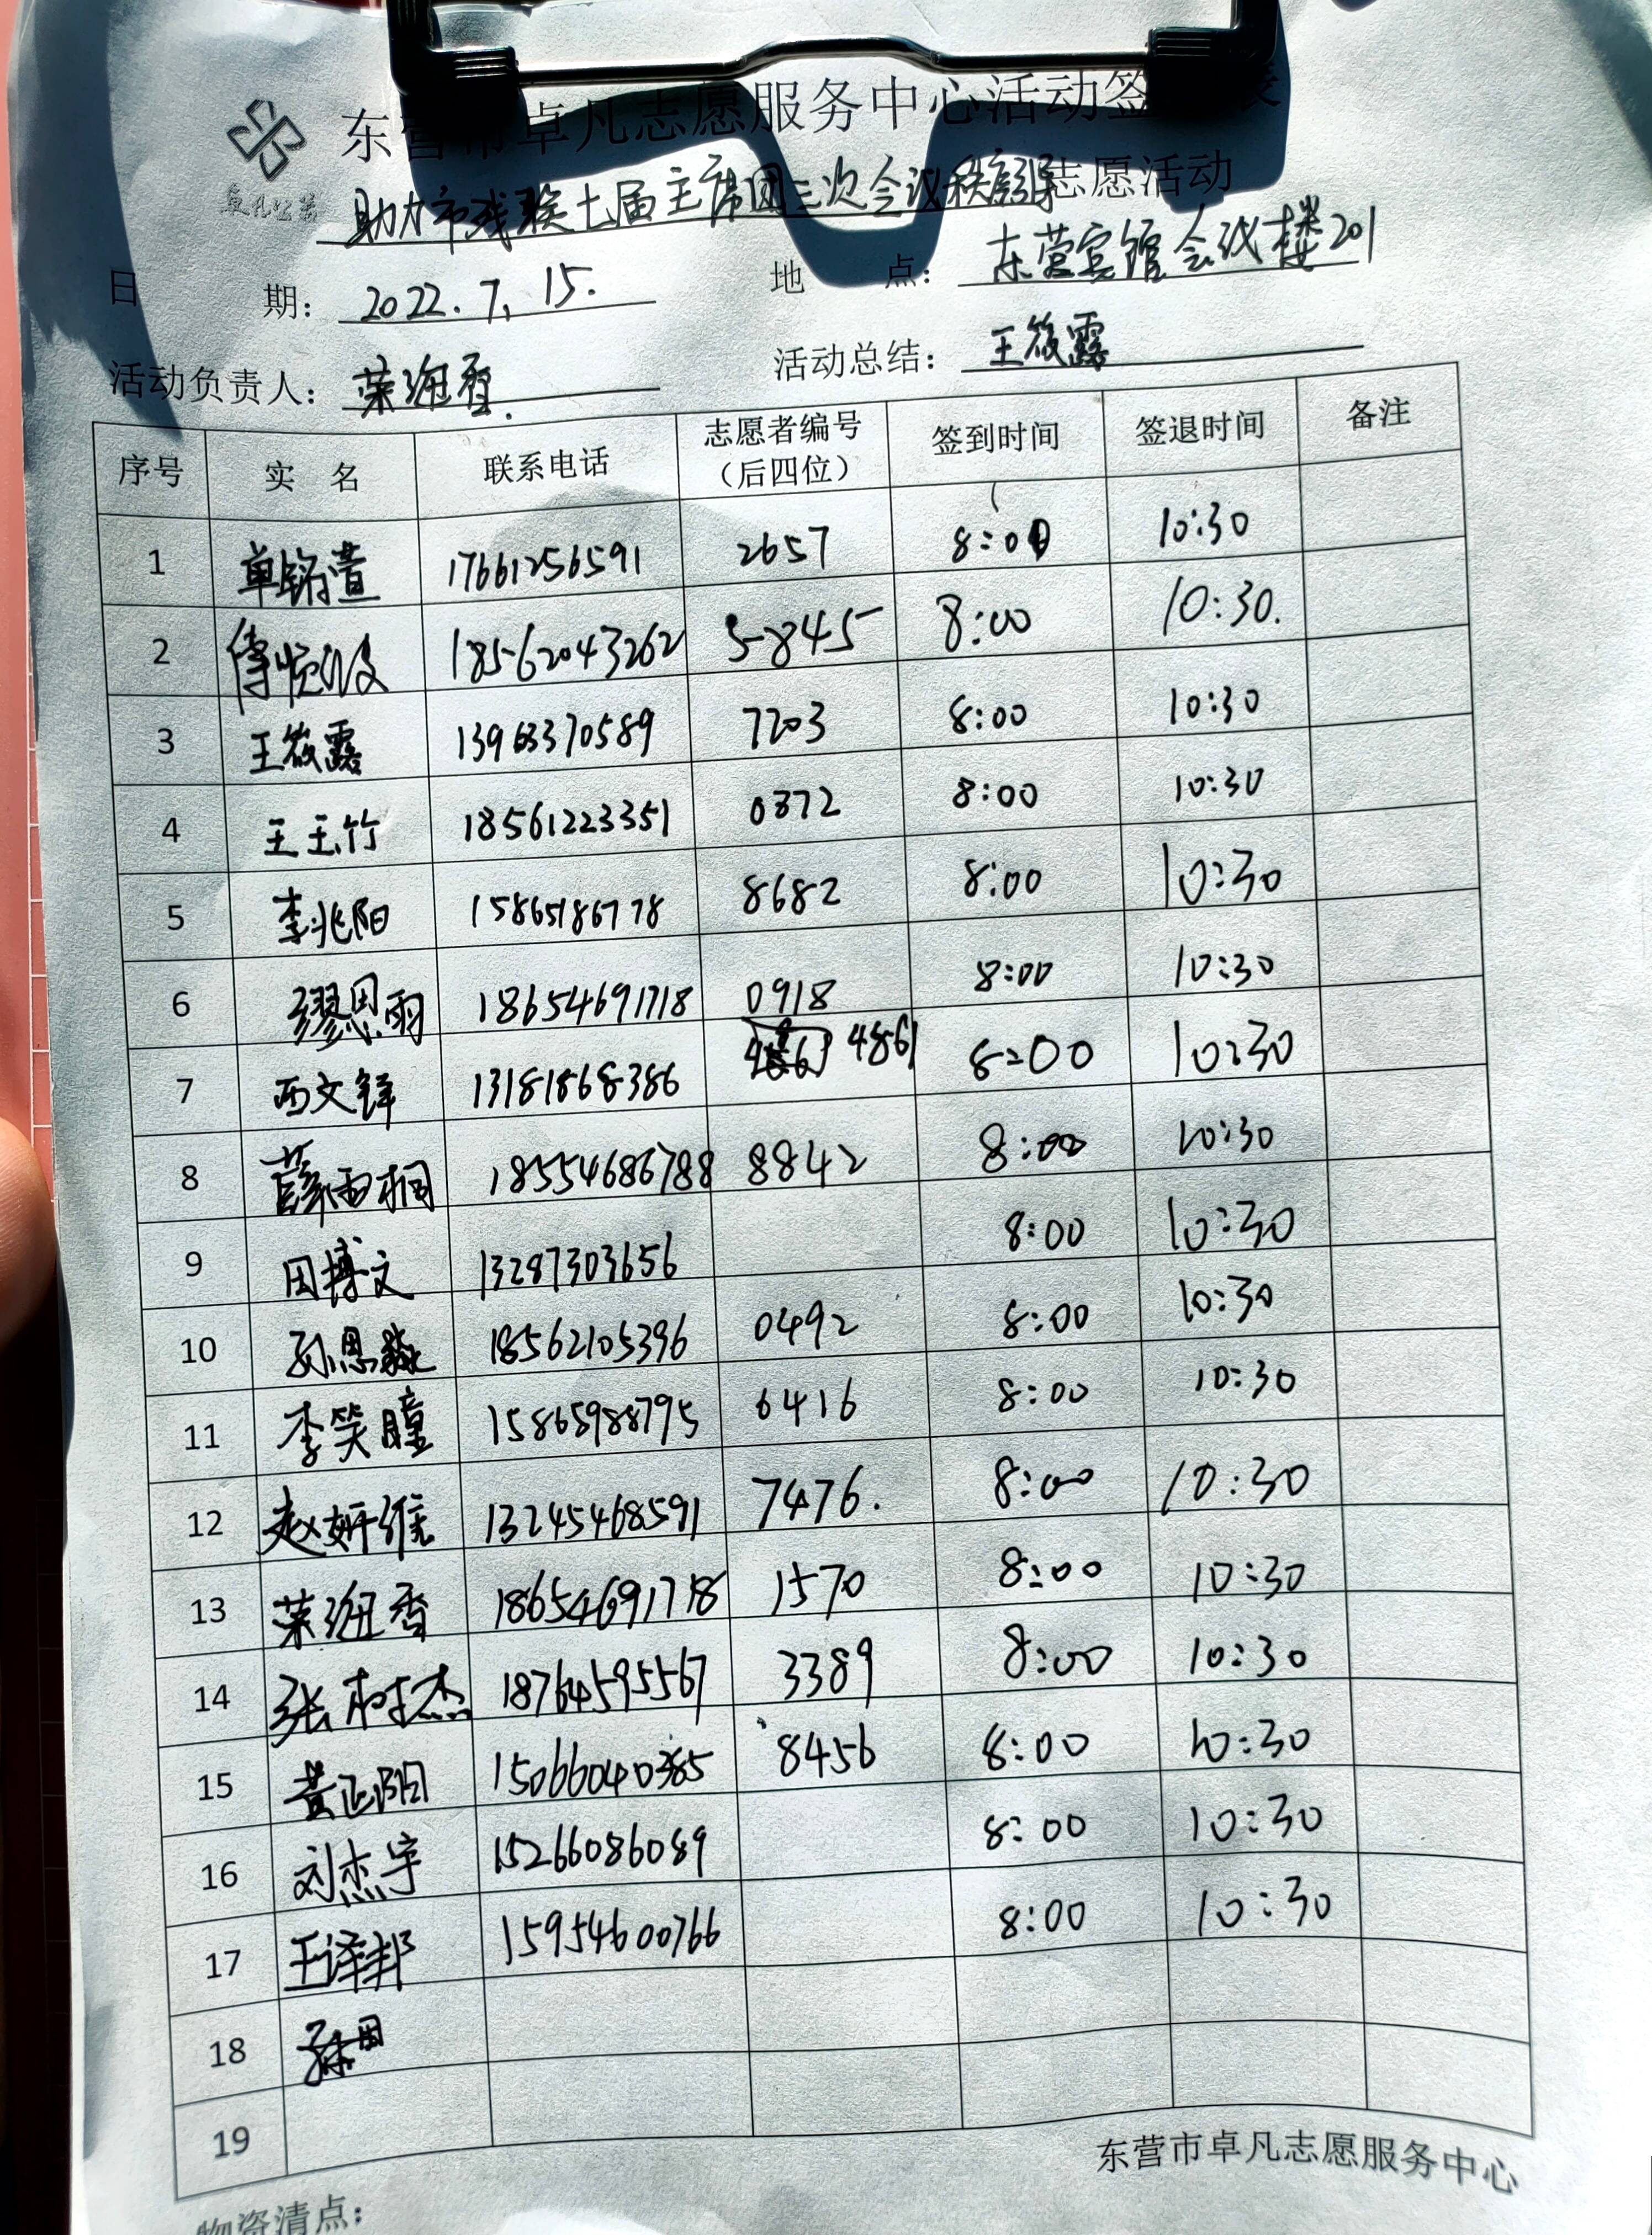 东营市卓凡志愿服务中心活动签表
卓凡公益
助力市残联七届主席团三次会议秩序引导志愿活动
日 期：2022.7.15. 地 点：东营宾馆会议楼201
活动负责人：荣海香. 活动总结：王筱露
序号 实 名 联系电话 志愿者编号（后四位） 签到时间 签退时间 备注
1 单锦萱 17661256591 2657 8:00 10:30
2 傅悦波 18562043262 5845 8:00 10:30.
3 王筱露 13963370589 7203 8:00 10:30
4 王玉竹 18561223351 0372 8:00 10:30
5 李兆阳 15865186778 8682 8:00 10:30
6 缪思雨 18654691718 0918 8:00 10:30
7 西文铎 13181868386 4861 8:00 10:30
8 薛雨桐 18554686788 8842 8:00 10:30
9 田博文 13287303656 8:00 10:30
10 孙恩 18562105396 0492 8:00 10:30
11 李笑瞳 15865988795 6416 8:00 10:30
12 赵妍维 13245468591 7476. 8:00 10:30
13 荣海香 18654691718 1570 8:00 10:30
14 张树杰 18764595567 3389 8:00 10:30
15 黄正阳 15066040385 8456 8:00 10:30
16 刘杰宇 15266086089 8:00 10:30
17 王译邦 15954600766 8:00 10:30
18
19
东营市卓凡志愿服务中心
物资清点：